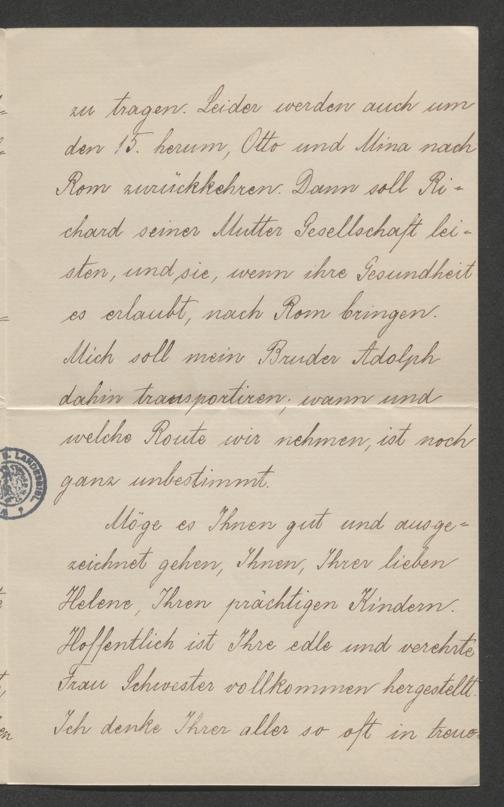 zu tragen. Leider werden auch um
den 15. herum, Otto und Mina nach
Rom zurückkehren. Dann soll Ri-
chard seiner Mutter Gesellschaft lei-
sten, und sie, wenn ihre Gesundheit
es erlaubt, nach Rom bringen.
Mich soll mein Bruder Adolph
dahin transportiren; wann und
welche Route wir nehmen, ist noch
ganz unbestimmt.
Möge es Ihnen gut und ausge-
zeichnet gehen, Ihnen, Ihrer lieben
Helene, Ihren prächtigen Kindern.
Hoffentlich ist Ihre edle und verehrte
Frau Schwester vollkommen hergestellt.
Ich denke Ihrer aller so oft in treue